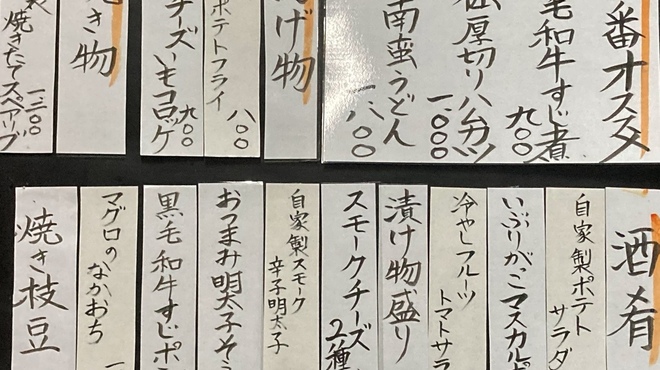 番オスメ
毛和牛すじ煮 九〇〇
厚切りハムカツ 一〇〇〇
南蛮うどん 一八〇〇
げ物
ポテトフライ 八〇〇
チーズいもコロッケ 九〇〇
き物
焼きたてスペアリブ 一三〇〇
酒肴
自家製ポテトサラダ
いぶりがっこマスカルポ
冷やしフルーツトマトサラ
漬け物盛り
スモークチーズ2種
自家製スモーク辛子明太子
おつまみ明太子そう
黒毛和牛すじポ
マグロのなかおち
焼き枝豆